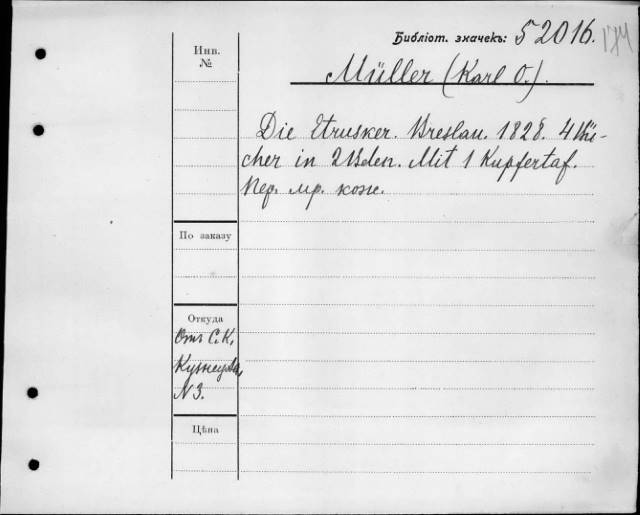 Библіот. значекъ: 52016.
174
Инв.
№
Müller (Karl O.).
Die Etrusker. Breslau. 1828. 4 Bü-
cher in 2 Bden. Mit 1 Kupfertaf.
Пер. мр. кож.
По заказу
Откуда
Отъ С.К.
Кузнецова,
N 3.
Цѣна